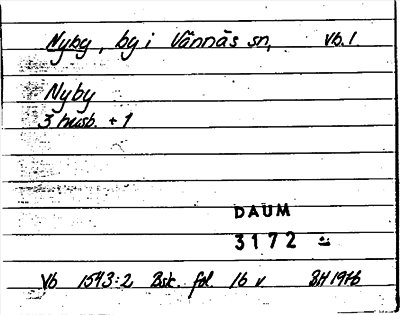 Nyby, by i Vännäs sn, Vb.1
Nyby
3 husb. + 1
DAUM
3172
Vb 1543:2 Bsk. fol. 16 v BH 1976